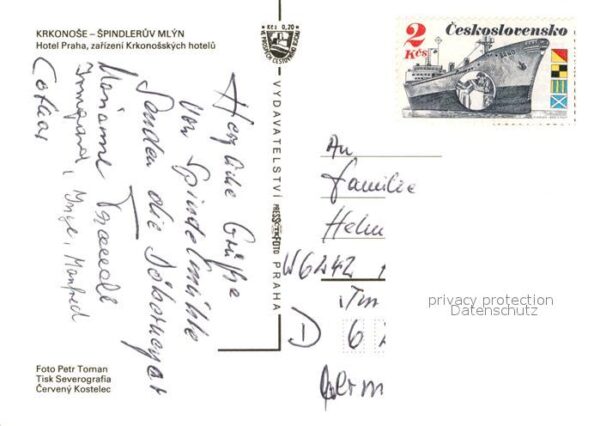 KRKONOŠE – ŠPINDLERŮV MLÝN
Hotel Praha, zařízení Krkonošských hotelů
Kčs 0,20
Československo
2
Kčs
Herzliche Grüße
von Spindelmühle
Senden die
Marianne
Irmgard, Inge, Manfred
VYDAVATELSTVÍ PRESSFOTO PRAHA
An
Familie
Helm
W6242
D 6
privacy protection
Datenschutz
Foto Petr Toman
Tisk Severografia
Červený Kostelec